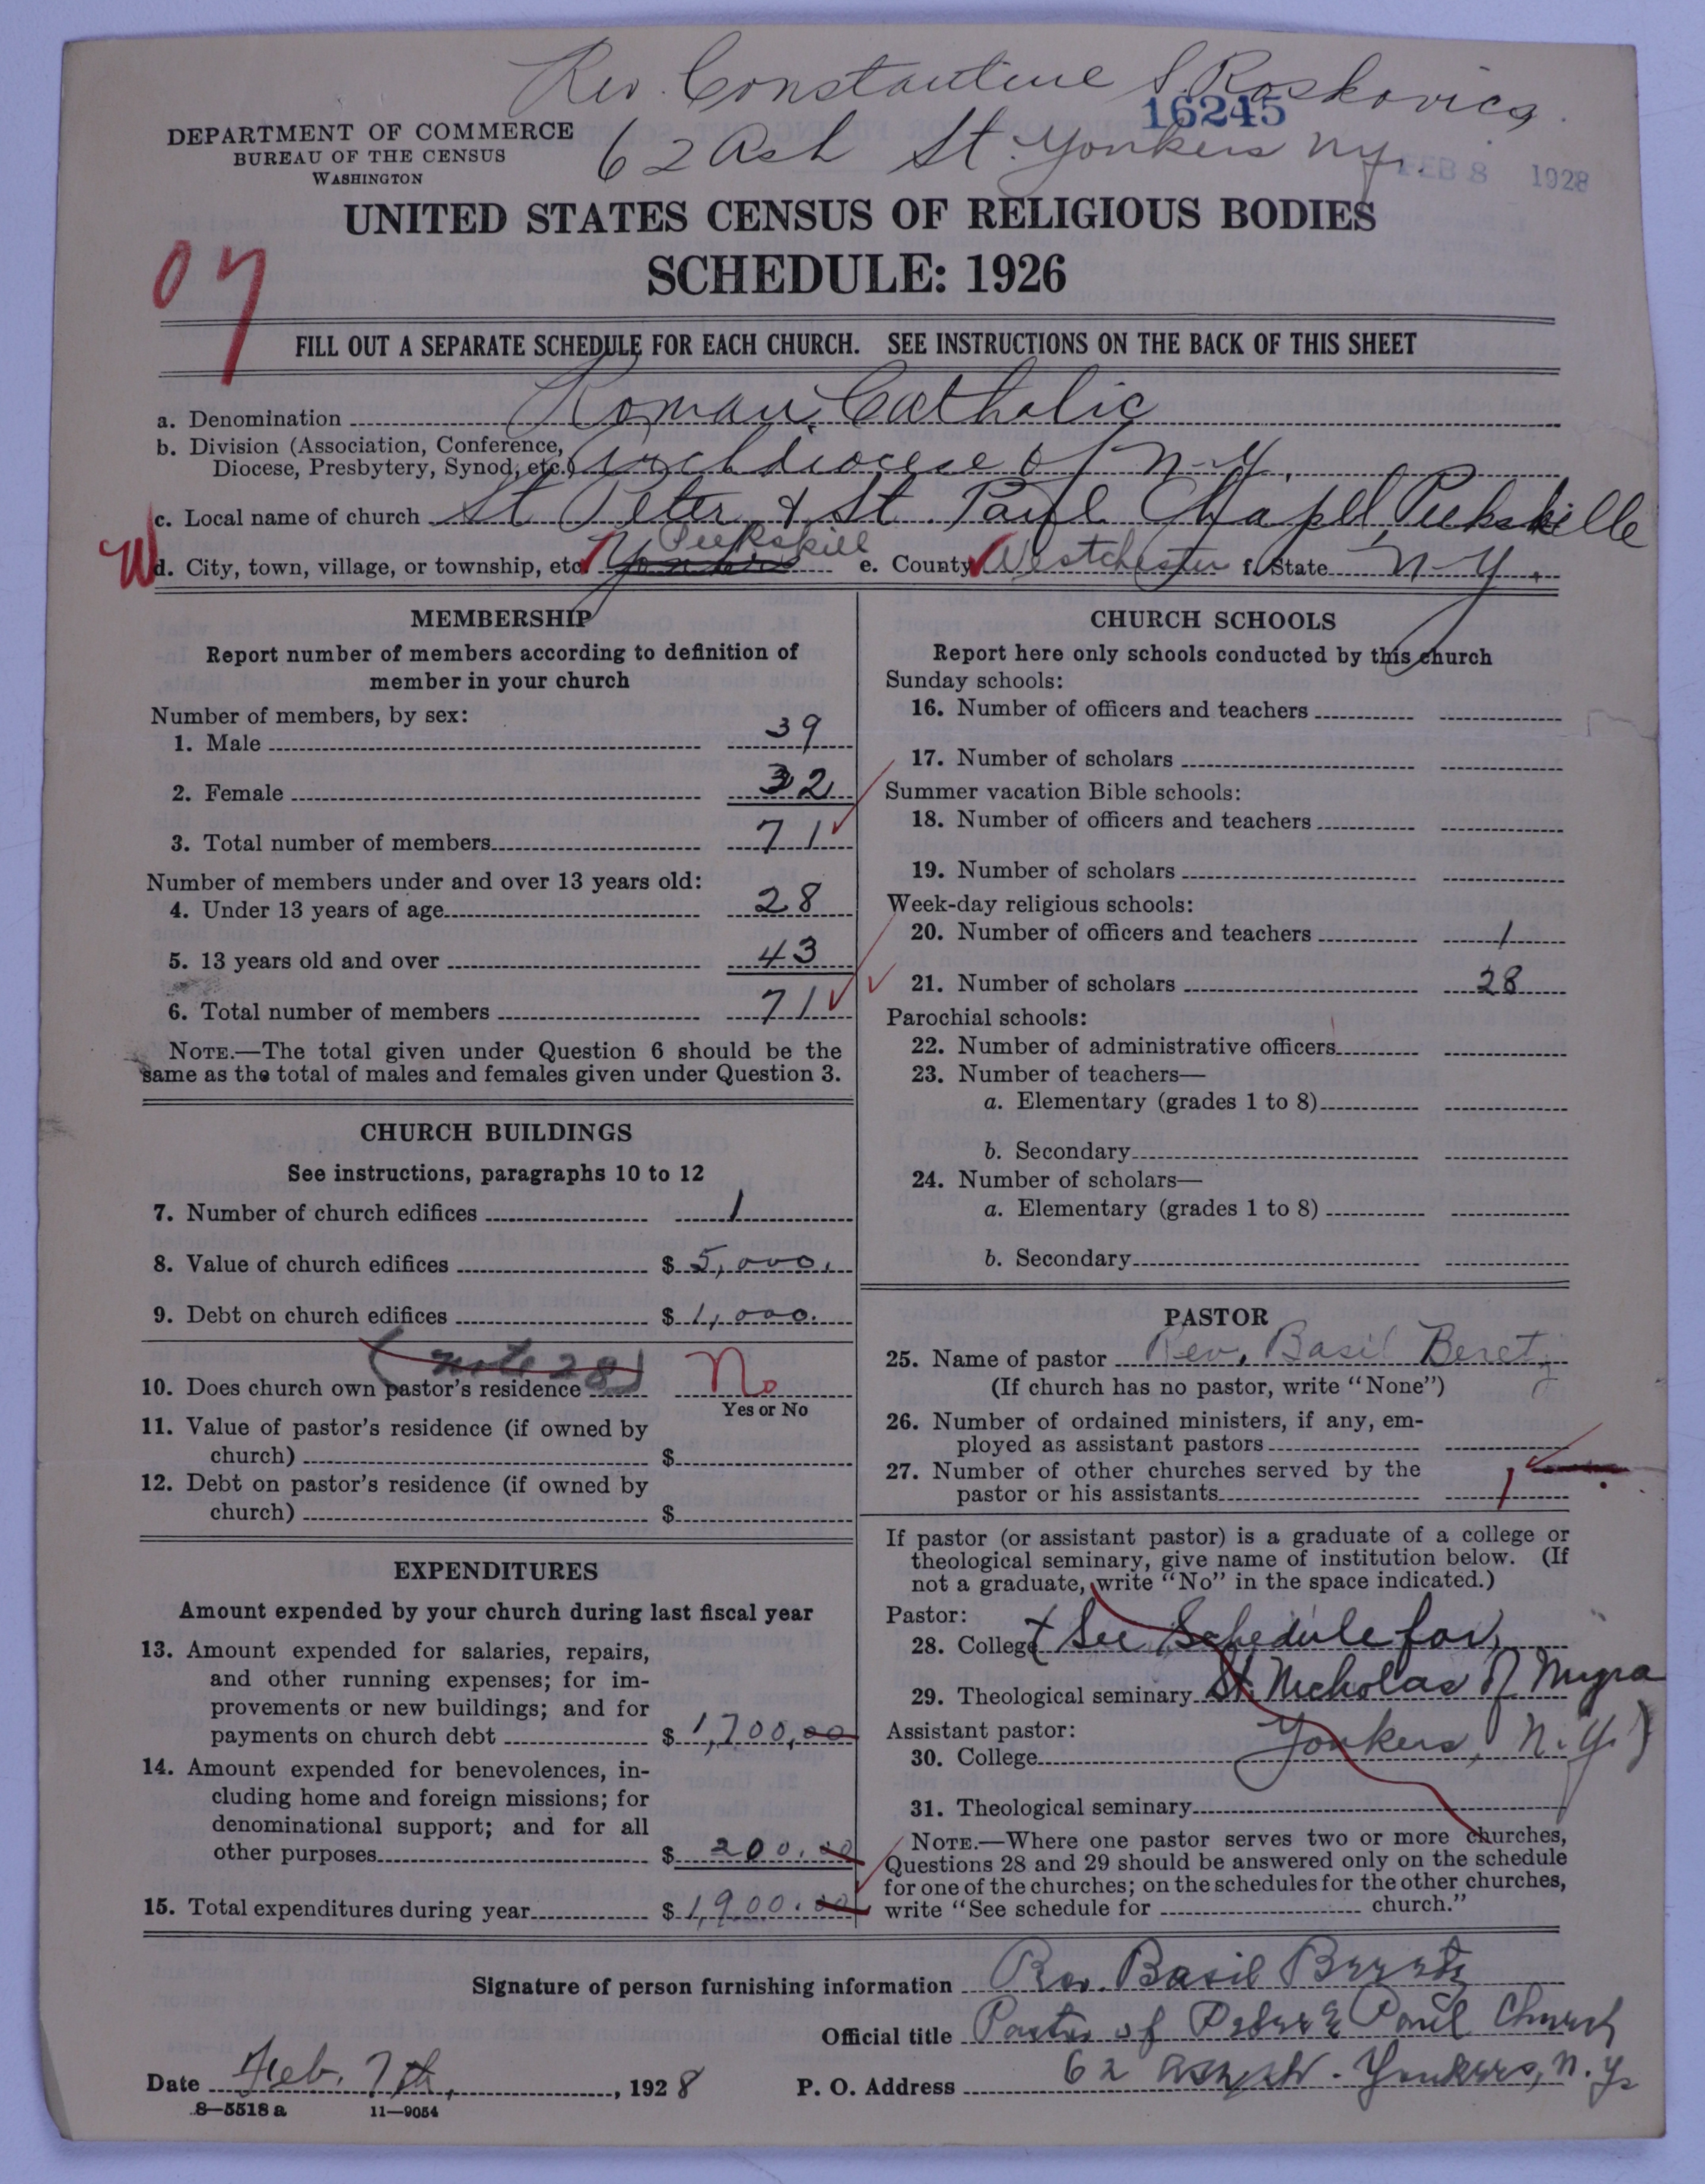 Rev. Constantine S. Roskovics
16245
DEPARTMENT OF COMMERCE
BUREAU OF THE CENSUS
WASHINGTON
62 Ash St. Yonkers N.Y.
FEB 8 1928
UNITED STATES CENSUS OF RELIGIOUS BODIES
SCHEDULE: 1926
FILL OUT A SEPARATE SCHEDULE FOR EACH CHURCH. SEE INSTRUCTIONS ON THE BACK OF THIS SHEET
a. Denomination Roman Catholic
b. Division (Association, Conference,
Diocese, Presbytery, Synod, etc.) Archdiocese of N-Y.
c. Local name of church St Peter & St. Paul Chapel, Peekskille
d. City, town, village, or township, etc. Yonkers Peekskill e. County Westchester f. State N-Y.
MEMBERSHIP
Report number of members according to definition of
member in your church
Number of members, by sex:
1. Male 39
2. Female 32
3. Total number of members 71
Number of members under and over 13 years old:
4. Under 13 years of age 28
5. 13 years old and over 43
6. Total number of members 71
NOTE.—The total given under Question 6 should be the
same as the total of males and females given under Question 3.
CHURCH BUILDINGS
See instructions, paragraphs 10 to 12
7. Number of church edifices 1
8. Value of church edifices $ 5,000.
9. Debt on church edifices $ 1,000.
(note 28)
10. Does church own pastor's residence No
Yes or No
11. Value of pastor's residence (if owned by
church) $
12. Debt on pastor's residence (if owned by
church) $
EXPENDITURES
Amount expended by your church during last fiscal year
13. Amount expended for salaries, repairs,
and other running expenses; for im-
provements or new buildings; and for
payments on church debt $ 1,700,00
14. Amount expended for benevolences, in-
cluding home and foreign missions; for
denominational support; and for all
other purposes $ 200.00
15. Total expenditures during year $ 1,900.00
CHURCH SCHOOLS
Report here only schools conducted by this church
Sunday schools:
16. Number of officers and teachers
17. Number of scholars
Summer vacation Bible schools:
18. Number of officers and teachers
19. Number of scholars
Week-day religious schools:
20. Number of officers and teachers 1
21. Number of scholars 28
Parochial schools:
22. Number of administrative officers
23. Number of teachers—
a. Elementary (grades 1 to 8)
b. Secondary
24. Number of scholars—
a. Elementary (grades 1 to 8)
b. Secondary
PASTOR
25. Name of pastor Rev. Basil Beretz
(If church has no pastor, write "None")
26. Number of ordained ministers, if any, em-
ployed as assistant pastors
27. Number of other churches served by the
pastor or his assistants 1
If pastor (or assistant pastor) is a graduate of a college or
theological seminary, give name of institution below. (If
not a graduate, write "No" in the space indicated.)
Pastor:
28. College (See Schedule for,
29. Theological seminary St. Nicholas of Myra
Assistant pastor:
30. College Yonkers, N.Y.)
31. Theological seminary
NOTE.—Where one pastor serves two or more churches,
Questions 28 and 29 should be answered only on the schedule
for one of the churches; on the schedules for the other churches,
write "See schedule for church."
Signature of person furnishing information Rev. Basil Beretz
Official title Pastor of Peter & Paul Church
Date Feb. 7th, 1928 P. O. Address 62 Ash st. Yonkers, N.Y.
8—5518 a 11—9054